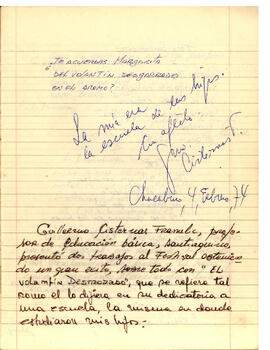 ¿TE ACUERDAS MARGARITA
DEL VOLANTÍN DESGARRADO
EN EL AROMO?
La mía era
la escuela de tus hijos.
Con afecto
Cisternas F.
Chacabuco, 4, Febrero, 74
Guillermo Cisternas Franulic, profe-
sor de Educación básica, santiaguino,
presentó dos trabajos al Festival obteniendo
do un gran éxito, sobre todo con "EL
volantín Desgarrado", que se refiere tal
como él lo dijera en su dedicatoria a
una escuela, la misma en donde
estudiaron mis hijos.-